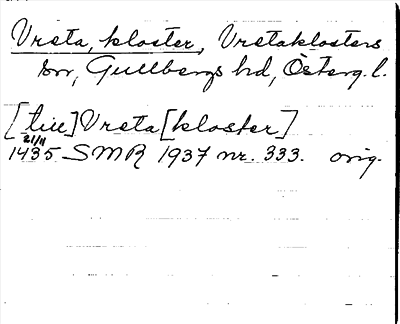 Vreta, kloster, Vretaklosters
sn, Gullbergs hd, Österg. l.
[till] Vreta [kloster]
21/11
1435 SMR 1937 nr. 333. orig.